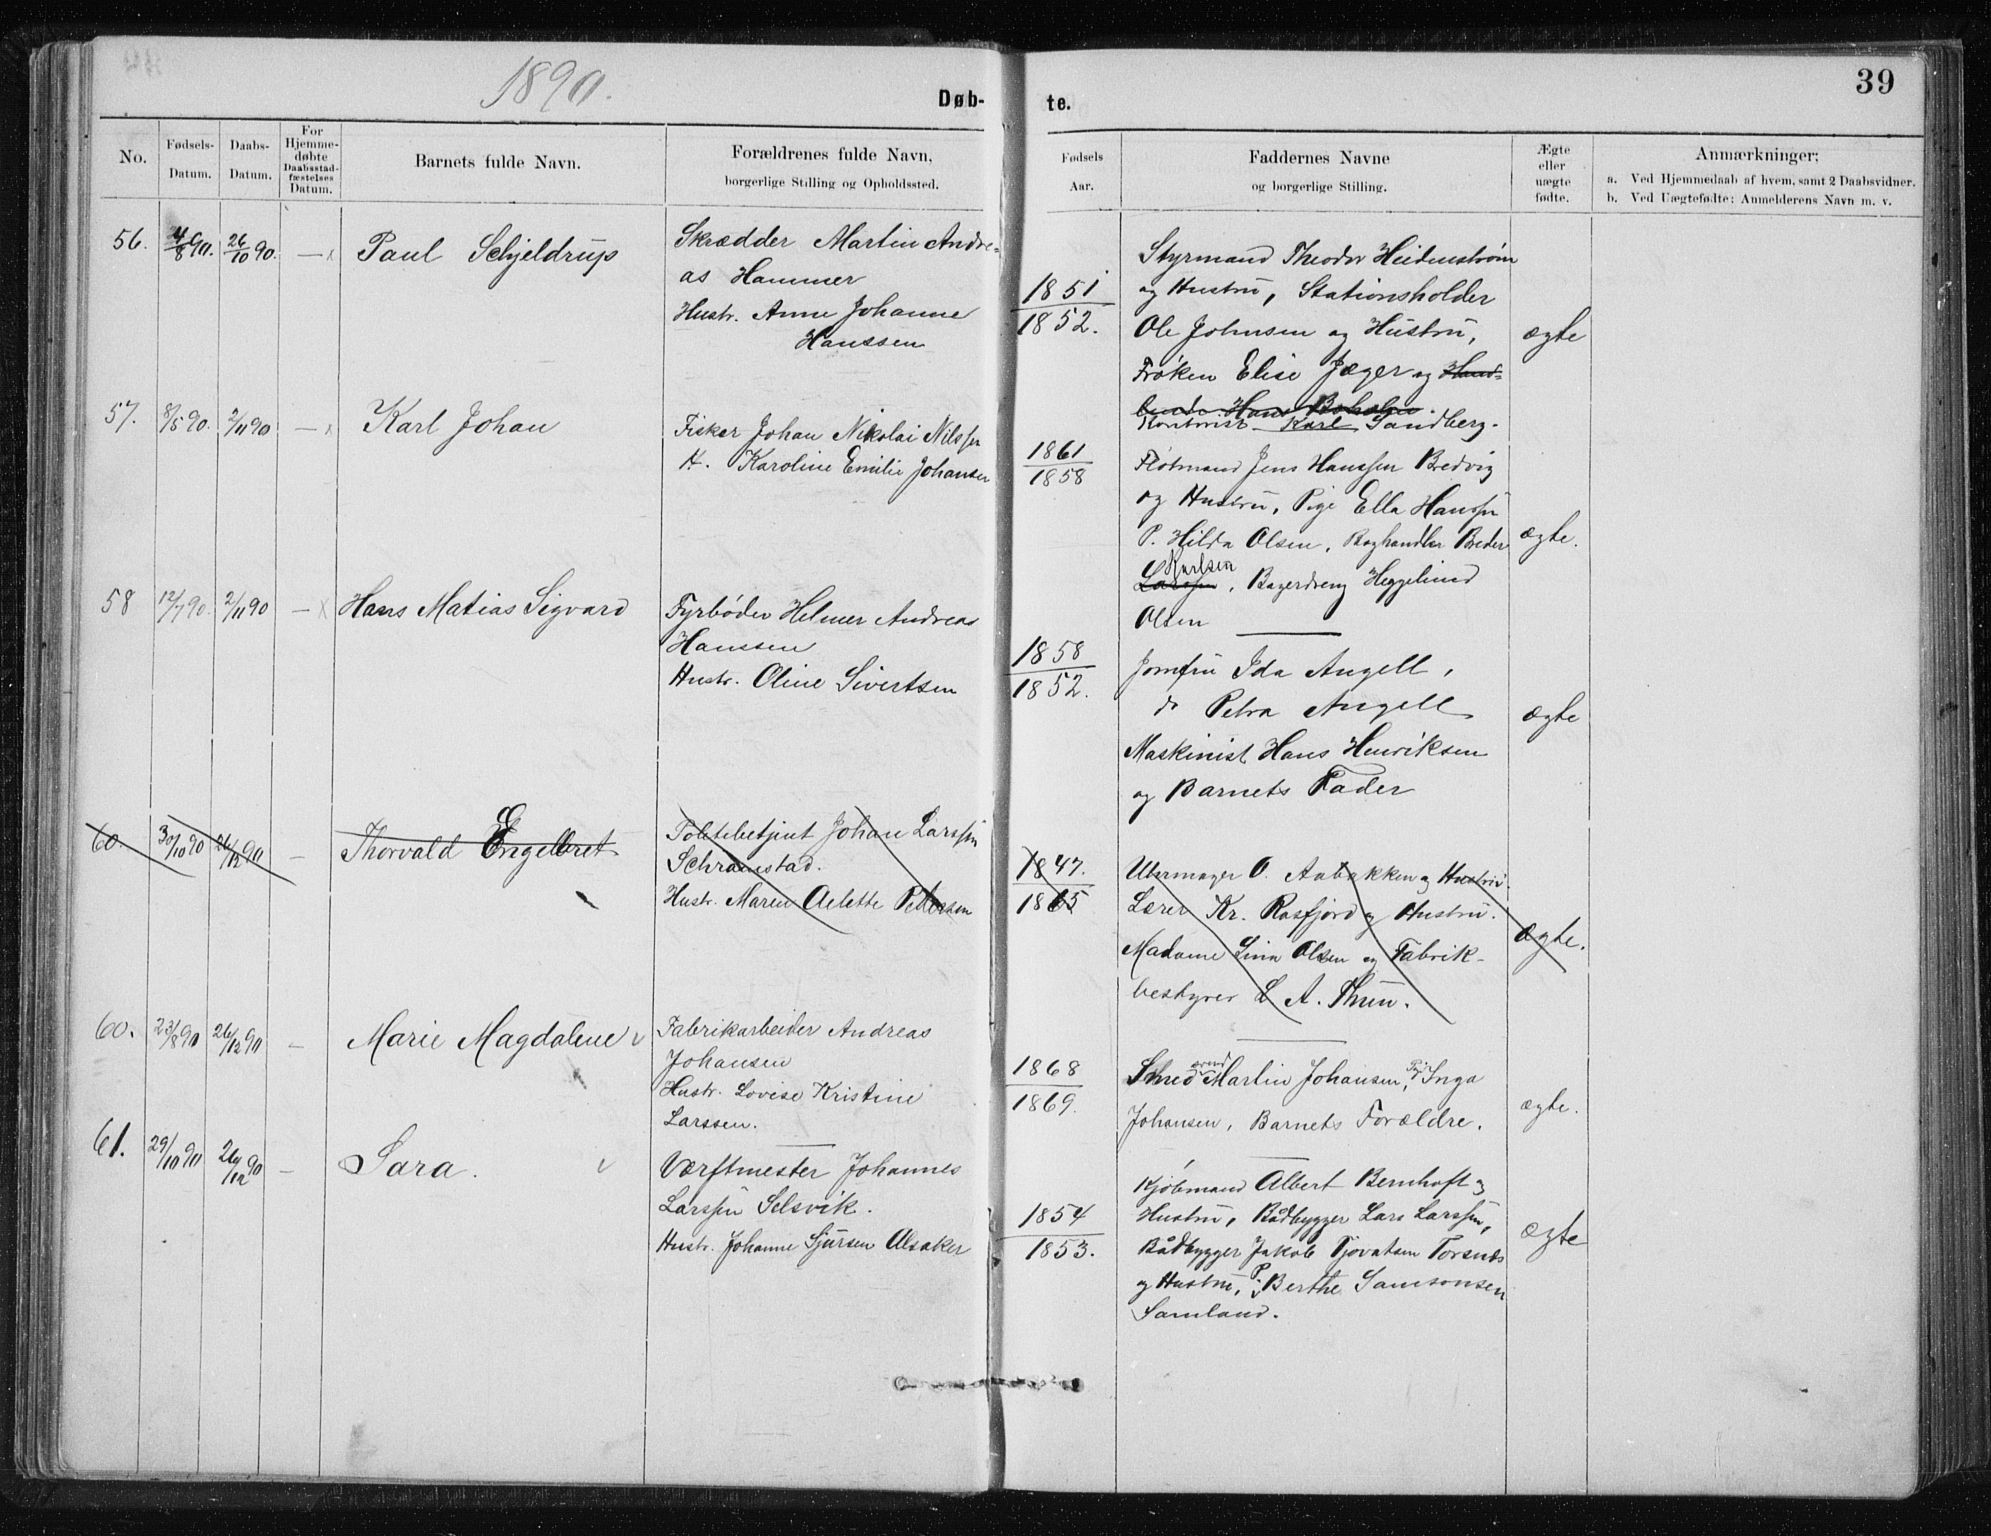 39
1890.
Døb- te.
No.
Fødsels- Datum.
Daabs- Datum.
For Hjemme- døbte Daabsstad- fæstelses Datum.
Barnets fulde Navn.
Forældrenes fulde Navn,
borgerlige Stilling og Opholdssted.
Fødsels Aar.
Faddernes Navne
og borgerlige Stilling.
Ægte eller uægte fødte.
Anmærkninger;
a. Ved Hjemmedaab af hvem, samt 2 Daabsvidner.
b. Ved Uægtefødte: Anmelderens Navn m. v.
56. 4/8 90. 26/10 90. — Paul Schjeldrup
Skrædder Martin Andre-
as Hammer
Hustr. Anne Johanne
Hanssen
1851
1852.
Styrmand Theodor Heidenstrøm
og Hustru, Stationsholder
Ole Johnsen og Hustru,
Frøken Elise Jæger og
Kontorist Karl Sandberg.
ægte
57. 8/5 90. 2/11 90 — Karl Johan
Fisker Johan Nikolai Nilssen
H. Karoline Emilie Johansen
1861
1858
Flotmand Jens Hanssen Bredvig
og Hustru, Pige Ella Hanssen
P. Hilda Olsen, Baghandler Peder
Larssen Karlsen, Bagerdreng Heggelund
Olsen
ægte.
58 12/7 90. 2/11 90 — Hans Matias Sigvard
Fyrbøder Helmer Andreas
Hanssen
Hustr. Oline Sivertsen
1858
1852.
Jomfru Ida Angell,
do Petra Angell
Maskinist Hans Henriksen
og Barnets Fader
ægte
60. 30/10 90 26/12 90 — Thorvald Engelbret
Politibetjent Johan Larssen
Schramstad.
Hustr. Maren Aelette Petersen
1847.
1865
Uhrmager O. Aabakken og Hustru.
Lærer Kr. Rasfjord og Hustru.
Madame Lina Olsen og Fabrik-
bestyrer L A. Thun.
ægte.
60. 23/8 90 26/12 90 — Marie Magdalene
Fabrikarbeider Andreas
Johansen
Hustr. Lovise Kristine
Larssen.
1868
1869.
Martin Johansen, Pige Inga
Johansen, Barnets Forældre.
ægte.
61. 29/10 90 26/12 90 — Sara.
Værftmester Johannes
Larssen Selsvik.
Hustr. Johanne Sjursen Alsaker
1854
1853.
Kjøbmand Albert Bernhoft og
Hustru, Bådbygger Lars Larssen,
Bådbygger Jakob Tjovatsen Torsnes
og Hustru, P. Berthe Samsonsen
Samland.
ægte